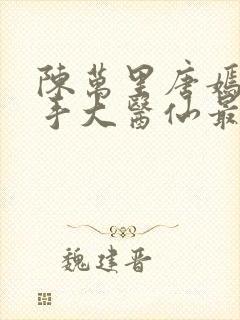 陳萬里唐嫣
手大醫仙最
魏建晉